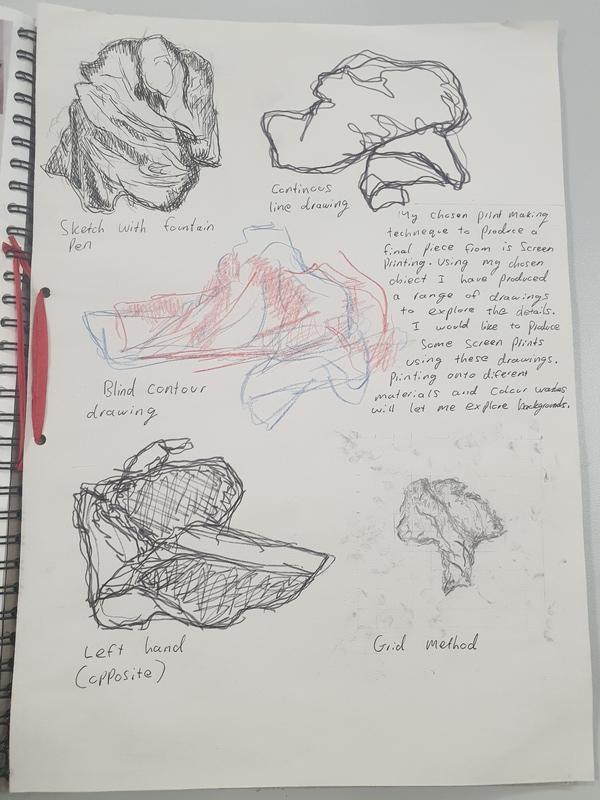 Sketch with fountain
pen
Continous
line drawing
My chosen print making
techneque to produce a
final piece from is Screen
Printing. Using my chosen
object I have produced
a range of drawings
to explore the details.
I would like to produce
Some Screen Prints
using these drawings.
Printing onto diferent
materials and Colour washes
will let me explore backgrounds.
Blind contour
drawing
Left hand
(opposite)
Grid method